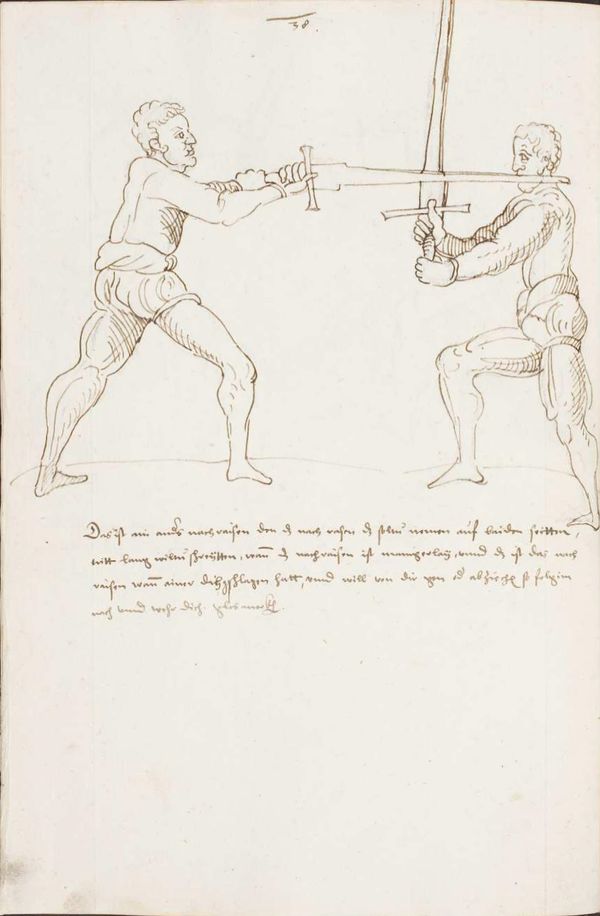 38.
Das ist ain anders nachraisen den das nach raisen das soltu nemen auf baiden seitten,
nitt lang wiltu schreytten, wann das nachraisen ist manigerlay, vnnd das ist das nach
raisen wann ainer durchschlagen hatt, vnnd will von dir gen abziechen so folg im
nach vnnd wehr dich.